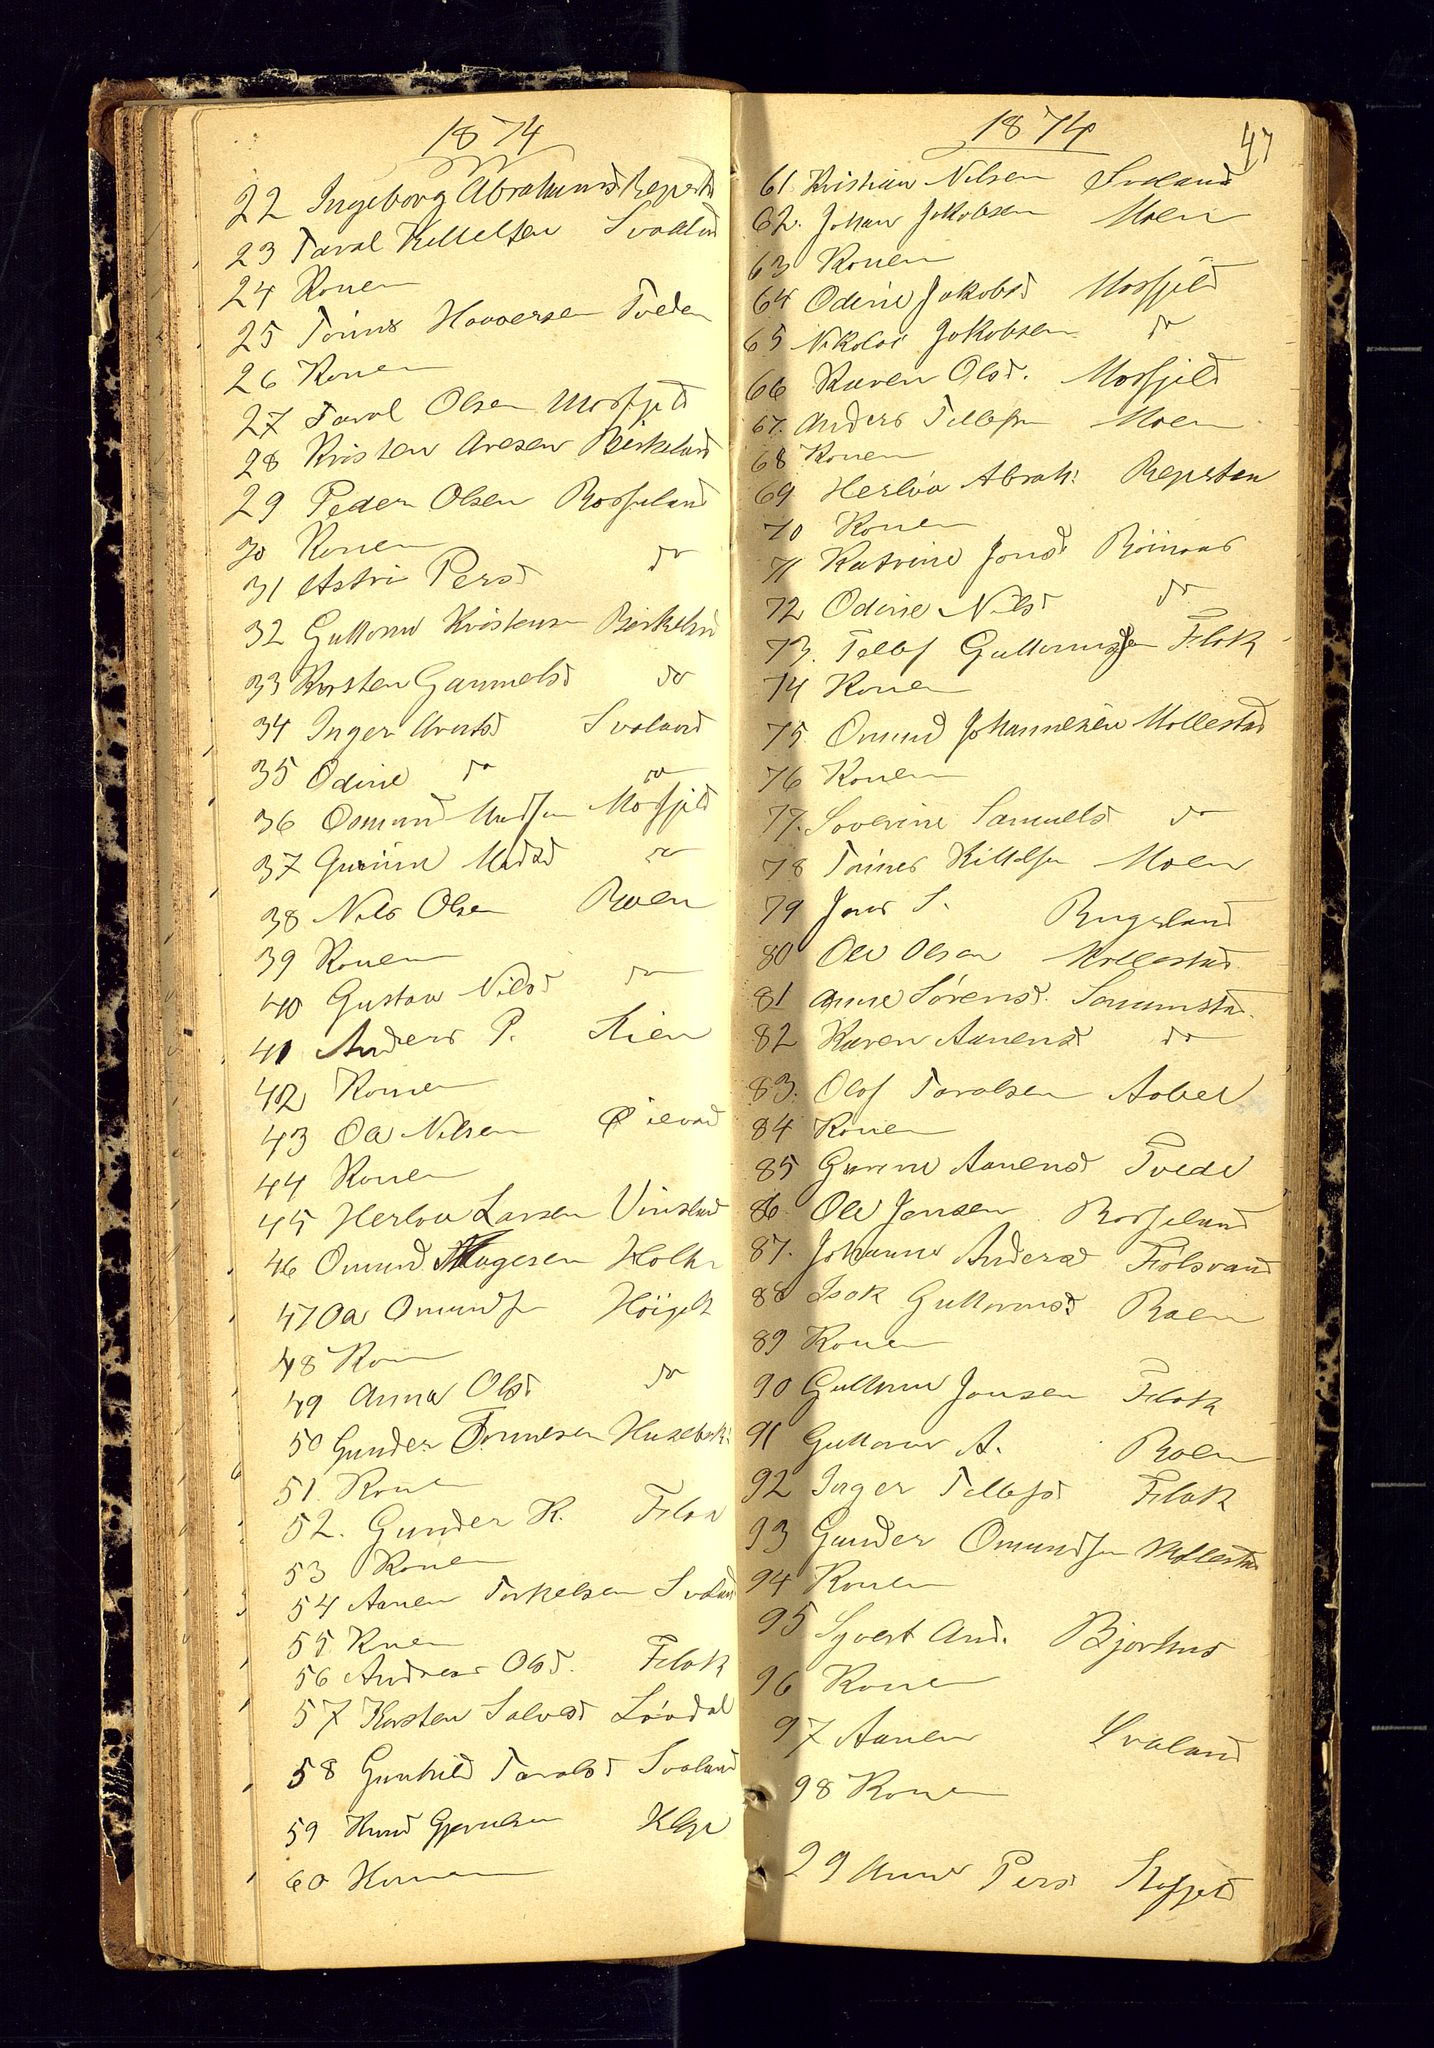 1874
22 Ingeborg Abrahamsd Repsta
23 Taral Kittelsen Svaland
24 Konen
25 Tønnes Haaversen Tveden
26 Konen
27 Taral Olsen Mosfjeld
28 Kristen Aresen Birkeland
29 Peder Olsen Rosseland
30 Konen
31 Astri Persd do
32 Guttorm Kristensen Birkeland
33 Karsten Gammelsd do
34 Inger Aretsd Svaland
35 Odine do do
36 Osmund Madsen Mosfjeld
37 Gunine Madsd do
38 Nils Olsen Roen
39 Konen
40 Gustav Nilsd do
41 Anders P. Lien
42 Konen
43 Oa Nilsen Øievad
44 Konen
45 Herlov Larsen Vinstad
46 Omund Aagesen Holte
47 Oa Omundsen Höigelt
48 Kon
49 Anna Olsd do
50 Gunder Tønnesen Husebak
51 Konen
52. Gunder K. Flak
53 Konen
54 Aanen Torkelsen Svaland
55 Konen
56 Andreas Olsd. Flak
57 Karsten Salvesd Løvdal
58 Gunhild Taralsd Svaland
59 Knud Gjerulsen
60 Konen
1874 47
61. Kristian Nilsen Svaland
62. Johan Jakobsen Moen
63 Konen
64 Odine Jakobsd Mosfjeld
65 Nikolai Jakobsen do
66 Karen Olsd. Mosfjeld
67. Anders Tellefsen Moen
68 Konen
69 Herlov Abrah: Repstan
70 Konen
71 Katrine Jonsd Röinaas
72 Odine Nilsd do
73. Tellef Guttormsen Flak
74 Konen
75. Omund Johannesen Mollestad
76 Konen
77. Severine Samuelsd do
78 Tönnes Kittelsen Moen
79 Jens S. Rugsland
80 Ole Olsen Mollestad
81 Anne Sørensd. Sommstad.
82 Karen Aanensd do
83. Olof Taralsen Aabel
84 Konen
85 Gunine Aanensd Tvede
86. Ole Jensen Rosseland
87. Johanne Andersd Fiølsvand
88 Isak Guttormsd Roen
89 Konen
90 Guttorm Jonsen Flak
91 Guttorm A. Roen
92 Inger Tellefsd Flak
93 Gunder Omundsen Mollestad
94 Konen
95 Syvert And. Bjorhus
96 Konen
97 Aanen Svaland
98 Konen
99 Anne Persd